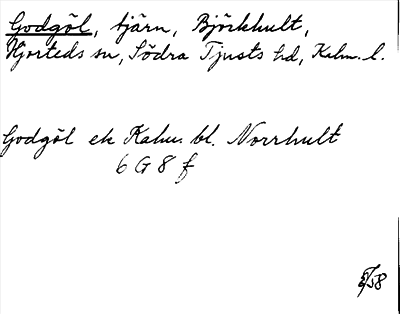 Godgöl, tjärn, Björkhult,
Hjorteds sn, Södra Tjusts hd, Kalm. l.
Godgöl ek Kalm. bl. Norrhult
6 G 8 f